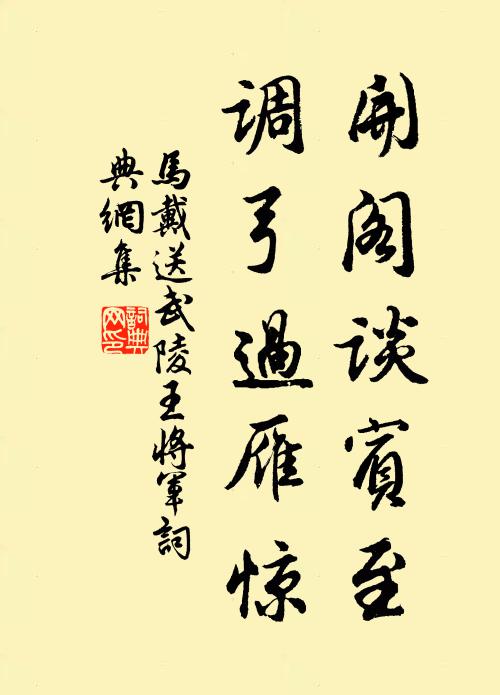 開阁談賓至
调弓過雁惊
馬戴送武陵王將軍詞
典網集
詞典
网印